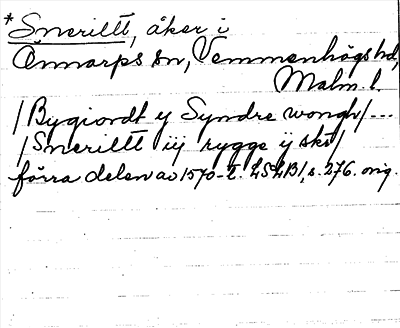 *Sneritt, åker i
Önnarps sn, Vemmenhögs hd,
Malm. l.
/Bygiordt y Syndre wongh/...
/Sneritt iij rygge ij sk/
förra delen av 1570-t. LSLB1, s. 276. orig.